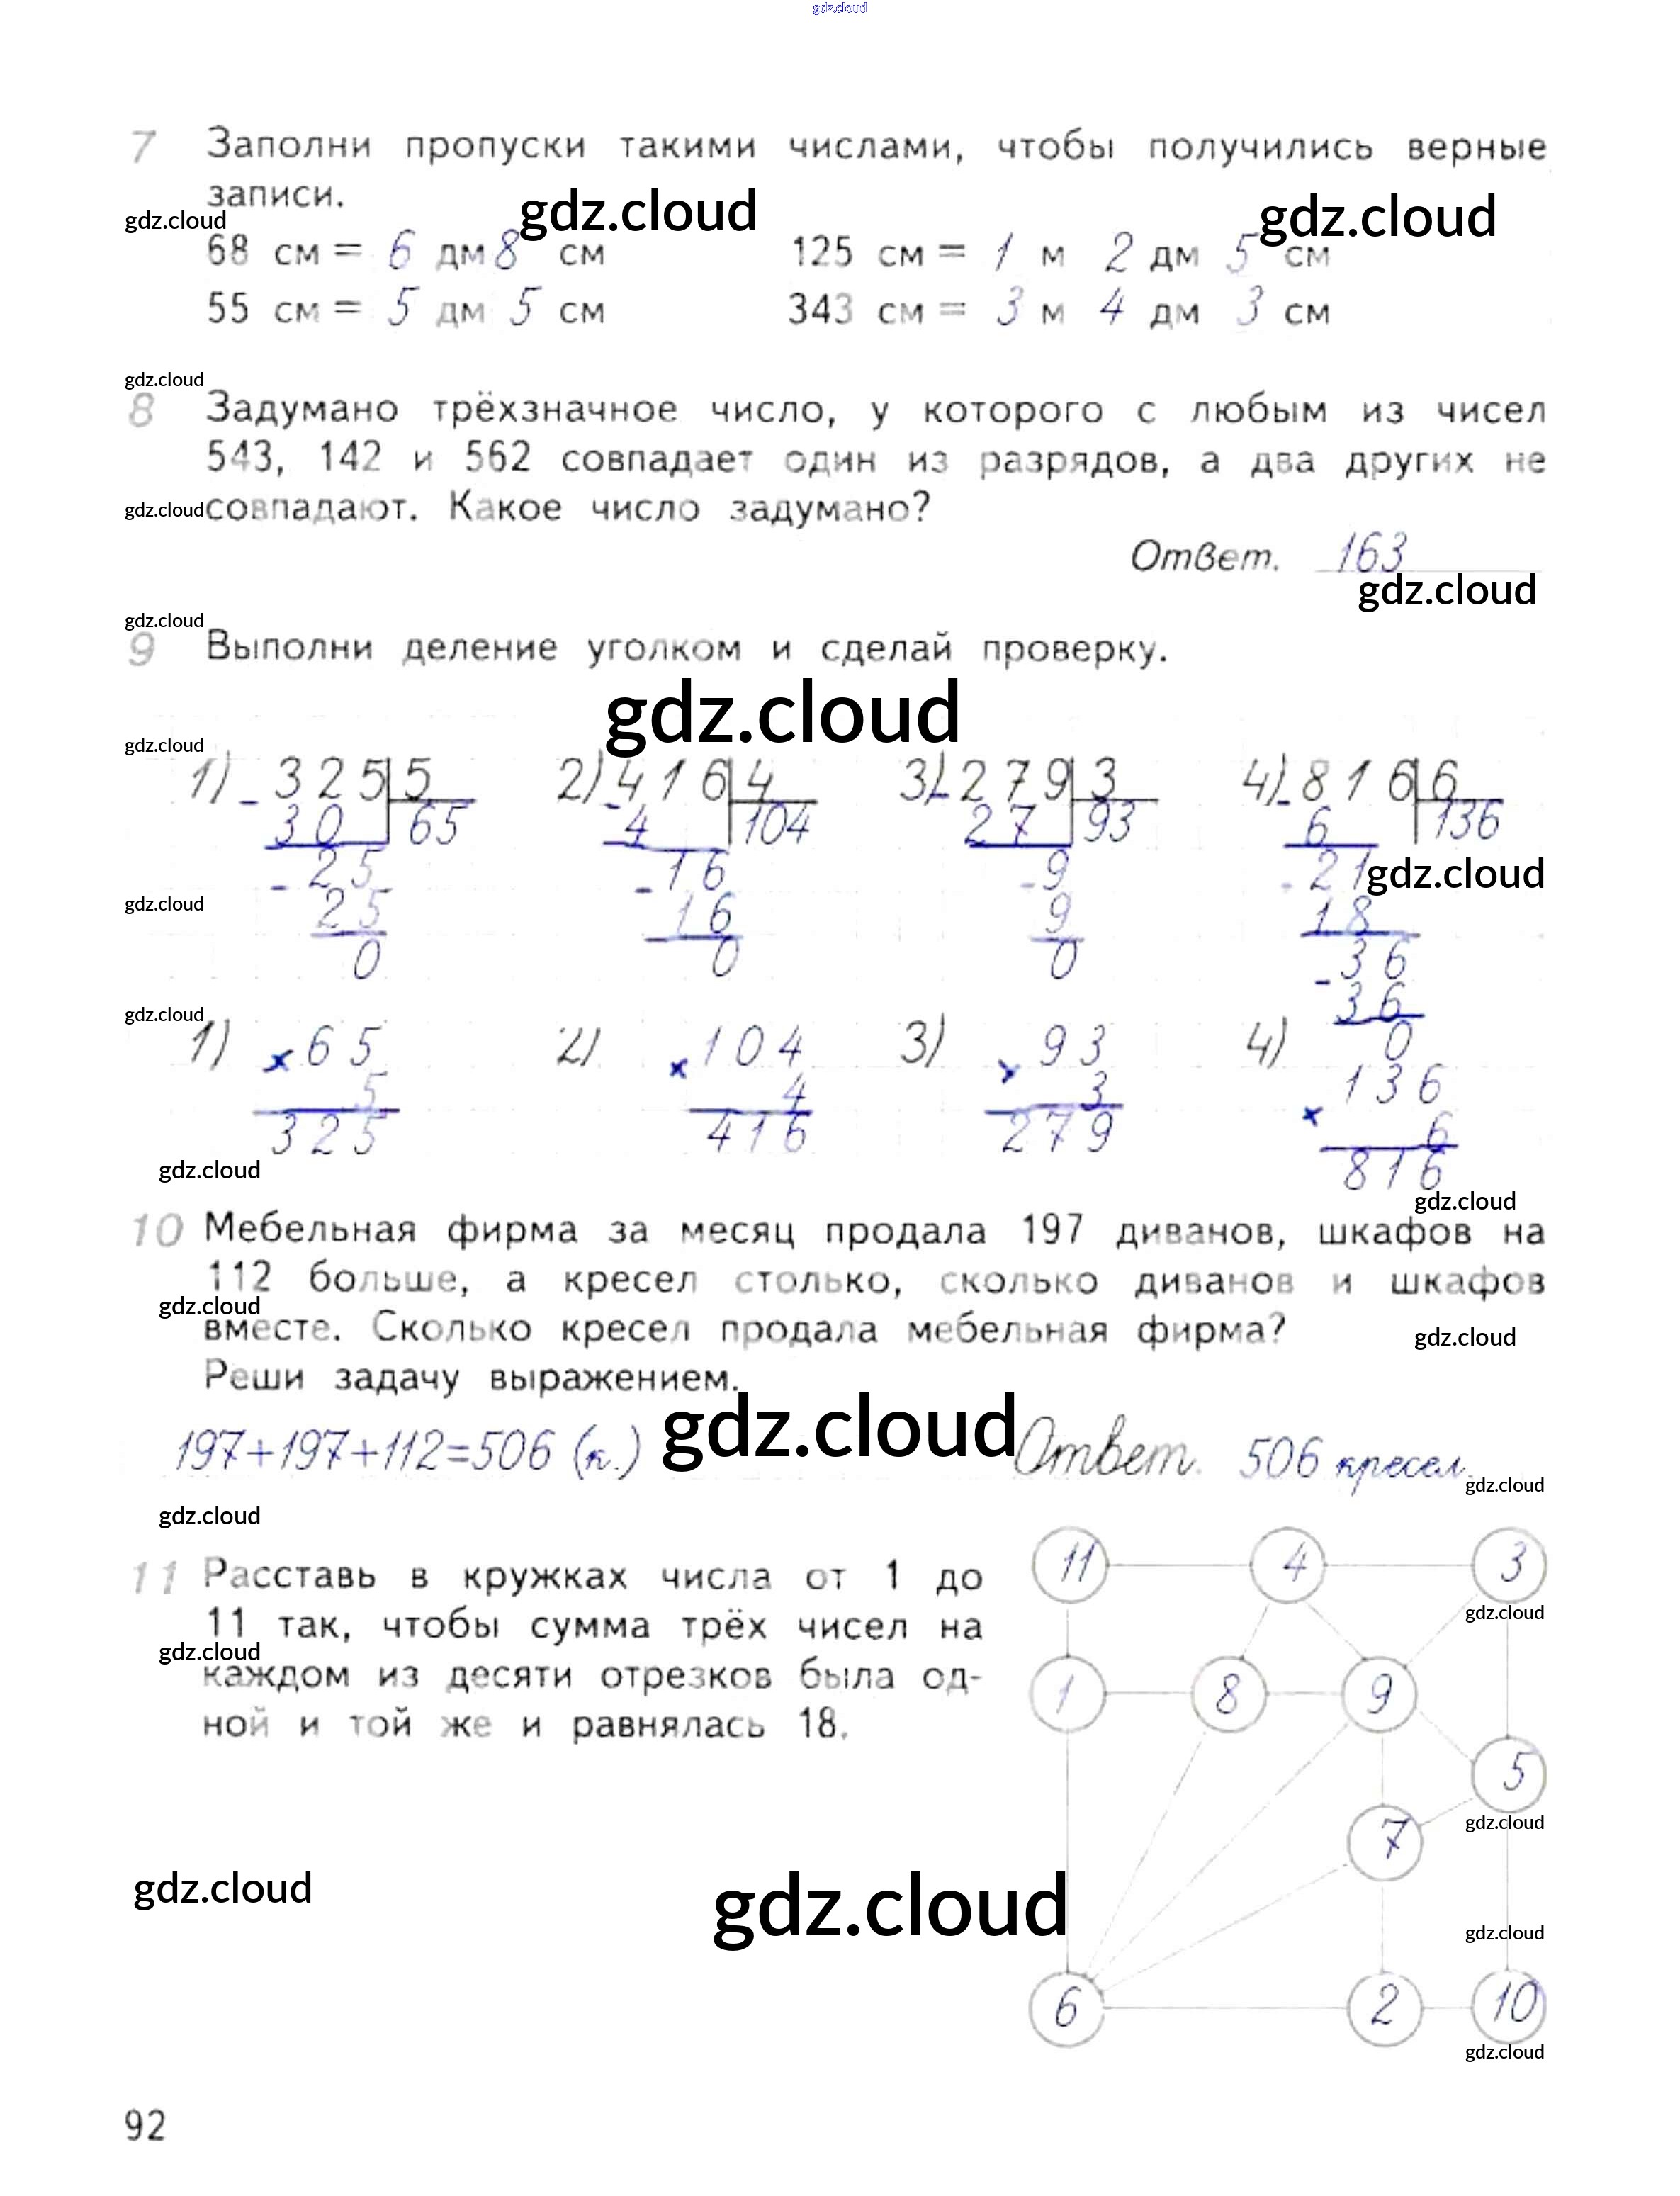 gdz.cloud
7 Заполни пропуски такими числами, чтобы получились верные
записи.
gdz.cloud gdz.cloud gdz.cloud
68 см = 6 дм 8 см 125 см = 1 м 2 дм 5 см
55 см = 5 дм 5 см 343 см = 3 м 4 дм 3 см
gdz.cloud
8 Задумано трёхзначное число, у которого с любым из чисел
543, 142 и 562 совпадает один из разрядов, а два других не
gdz.cloud совпадают. Какое число задумано?
Ответ. 163
gdz.cloud
gdz.cloud
9 Выполни деление уголком и сделай проверку.
gdz.cloud
gdz.cloud
1) - 325 5 2) - 416 4 3) - 279 3 4) - 816 6
30 65 4 104 27 93 6 136
- 25 - 16 - 9 - 21 gdz.cloud
gdz.cloud 25 16 9 18
0 0 0 - 36
gdz.cloud 36
1) × 65 2) × 104 3) × 93 4) 0
5 4 3 × 136
325 416 279 6
816
gdz.cloud
gdz.cloud
10 Мебельная фирма за месяц продала 197 диванов, шкафов на
112 больше, а кресел столько, сколько диванов и шкафов
gdz.cloud
вместе. Сколько кресел продала мебельная фирма?
gdz.cloud
Реши задачу выражением.
197+197+112=506 (к.) gdz.cloud Ответ. 506 кресел.
gdz.cloud
gdz.cloud
11 Расставь в кружках числа от 1 до
11 так, чтобы сумма трёх чисел на
gdz.cloud
каждом из десяти отрезков была од-
ной и той же и равнялась 18.
11 4 3
gdz.cloud
1 8 9
5
gdz.cloud
7
gdz.cloud gdz.cloud
gdz.cloud
6 2 10
gdz.cloud
92